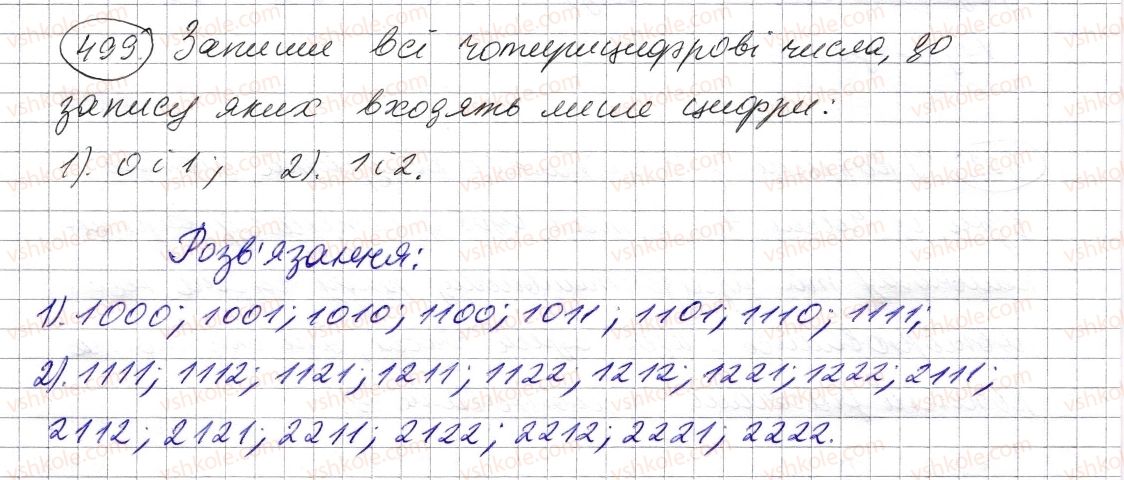 499 Запиши всі чотирицифрові числа, до
запису яких входять лише цифри:
1). 0 і 1; 2). 1 і 2.
Розв'язання:
1). 1000; 1001; 1010; 1100; 1011; 1101; 1110; 1111;
2). 1111; 1112; 1121; 1211; 1122; 1212; 1221; 1222; 2111;
2112; 2121; 2211; 2122; 2212; 2221; 2222.